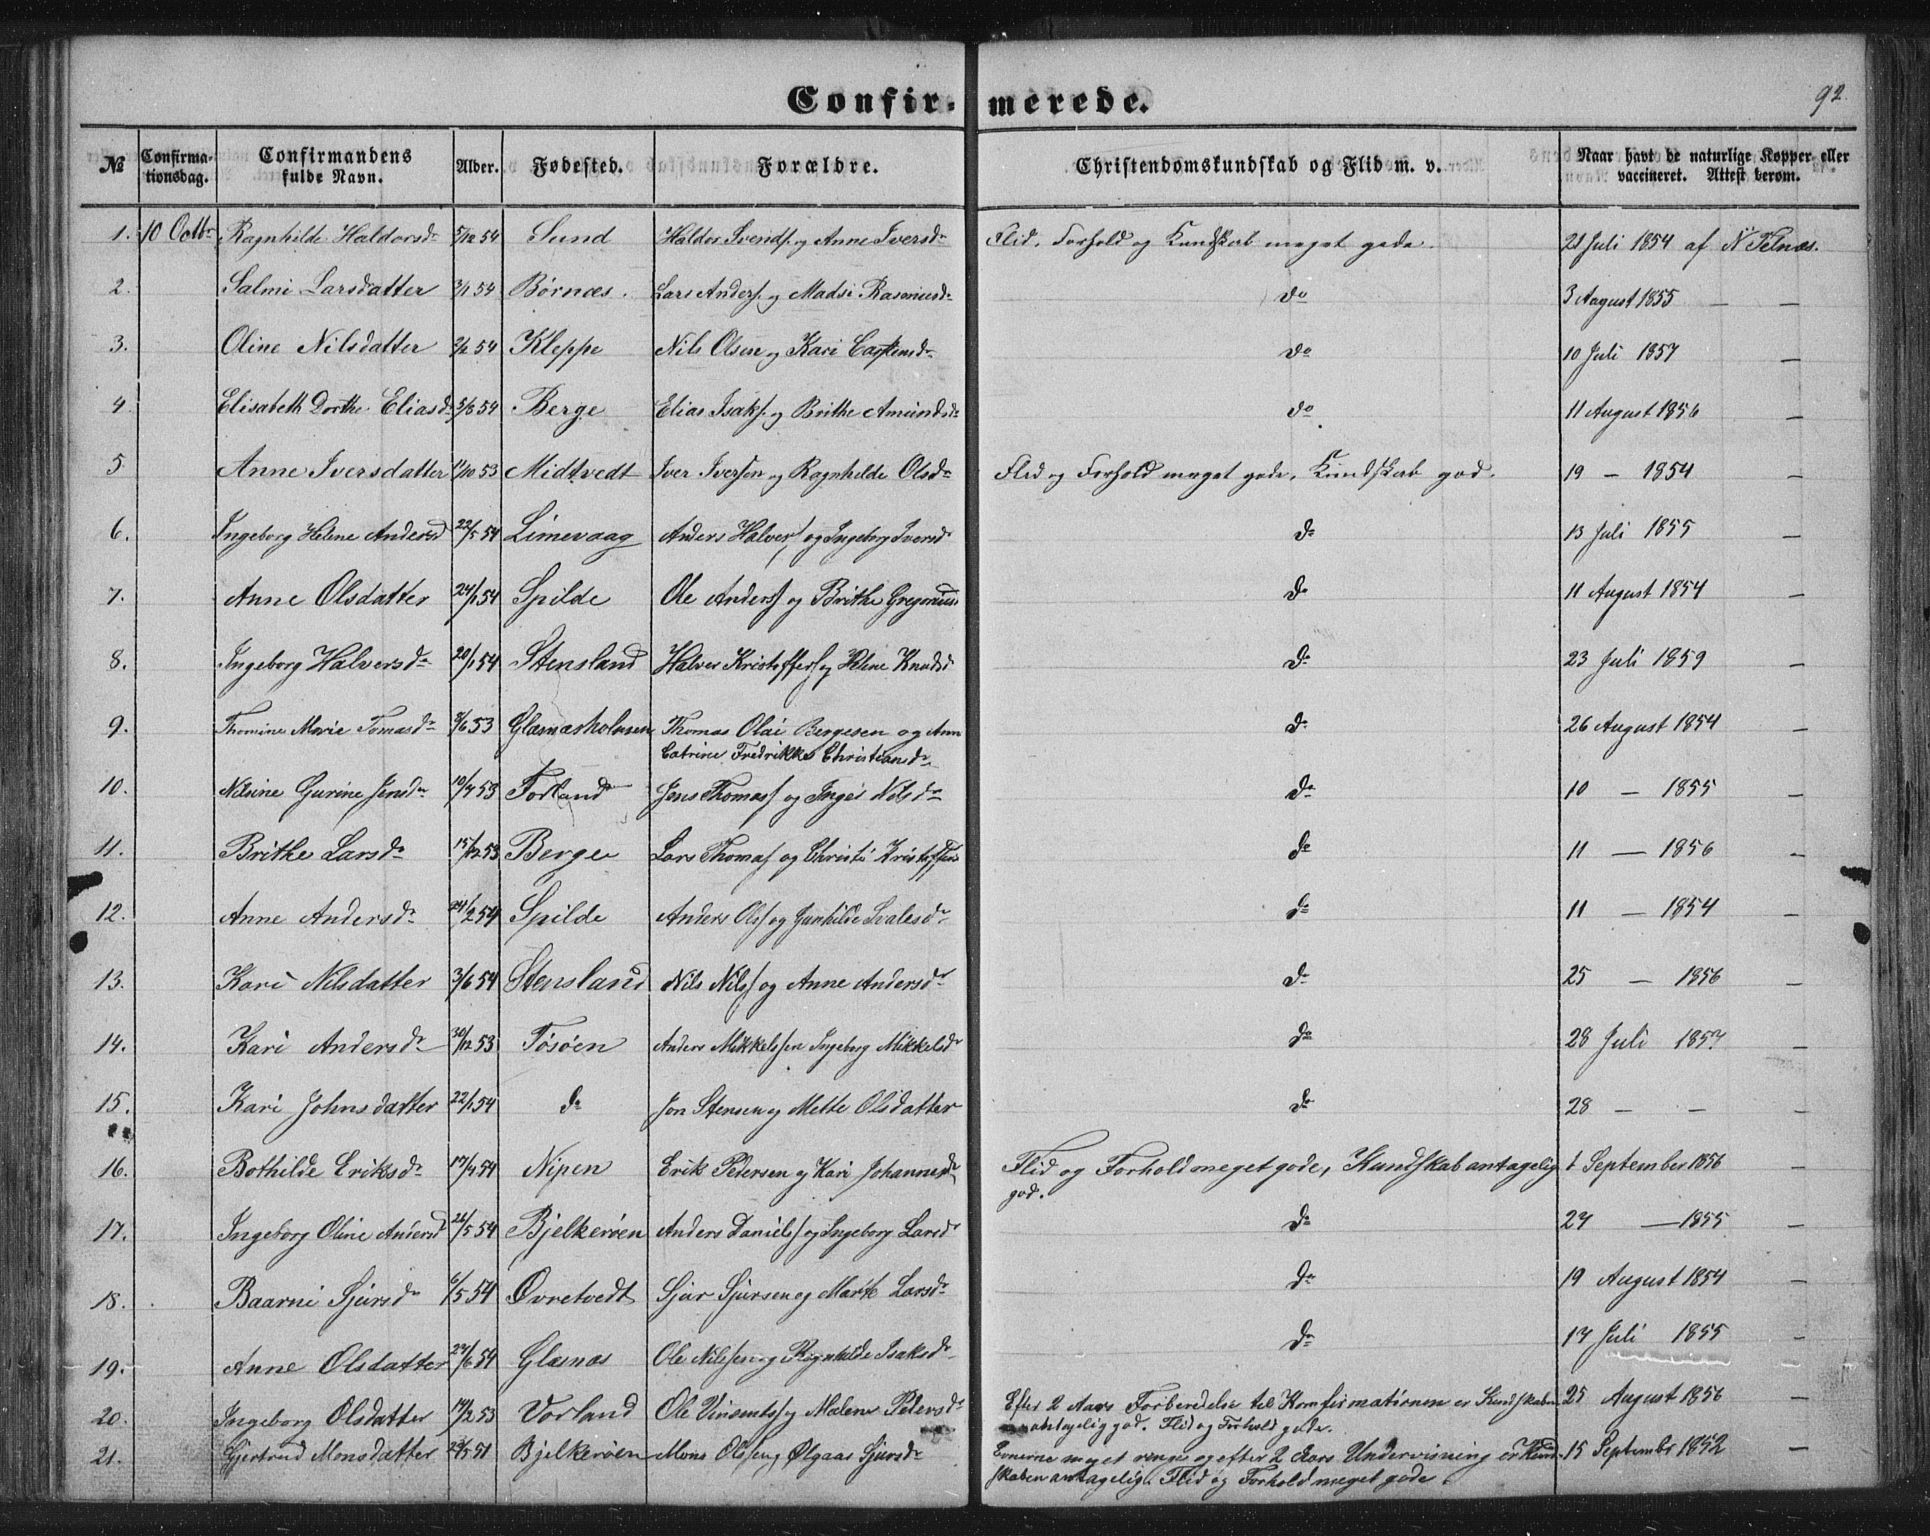 Confirmerede.
92
№ Confirmationsdag. Confirmandens fulde Navn. Alder. Fødested. Forældre. Christendomskundskab og Flid m. v. Naar havt de naturlige Kopper eller vaccineret. Attest derom.
1. 10 Octbr Ragnhilde Haldorsdr 5/12 54 Sund Haldor Svends. og Anne Iversdr Flid, Forhold og Kundskab meget gode. 21 Juli 1854 af N Telnæs.
2. Salmi Larsdatter 3/1 54 Børnæs. Lars Anders. og Madsi Rasmusdr do 3 August 1855 — —
3. Oline Nilsdatter 2/2 54 Kleppe Nils Olsen og Kari Castensdr do 10 Juli 1857 —
4. Elisabeth Dorthe Eliasdr 5/3 54 Berge Elias Isaks. og Brithe Amundsdr do 11 August 1856 —
5 Anne Iversdatter 11/10 53 Midtvedt Iver Iversen og Ragnhilde Olsdr Flid og Forhold meget gode, Kundskab god. 19 — 1854 —
6. Ingeborg Helene Andersd 22/5 54 Limevaag Anders Halvers. og Ingeborg Iversdr do 13 Juli 1855 —
7. Anne Olsdatter 24/1 54 Spilde Ole Anders. og Brithe Gregorius do 11 August 1854 —
8. Ingeborg Halversdr 20/1 54 Stensland Halver Kristoffers. og Helene Knudsd do 23 Juli 1859 —
9. Thomine Marie Tomasdr 2/6 53 Glæsnæsholmen Thomas Olai Bergesen og Ann do 26 August 1854 —
Catrine Fredrikke Christiansdr
10. Nilsine Gurine Jensdr 10/4 53 Forland Jens Thomas. og Inger Nilsdr do 10 — 1855 —
11. Brithe Larsdr 15/12 53 Berge Lars Thomas. og Christi Kristoffers do 11 — 1856 —
12. Anne Andersdr 24/2 54 Spilde Anders Ols. og Gunhilde Svalesdr do 11 — 1854 —
13. Kari Nilsdatter 3/6 54 Stensland Nils Nils. og Anne Andersdr do 25 — 1856 —
14. Kari Andersdr 30/12 53 Tøsøen Anders Mikkelssen Ingeborg Mikkelsdr do 28 Juli 1857 —
15. Kari Johnsdatter 22/1 54 do Jon Stensen og Mette Olsdatter do 28 — —
16. Bothilde Eriksdr 17/4 54 Nipen Erik Pedersen og Kari Johannesdr Flid og Forhold meget gode, Kundskab antagelig 1 September 1856 —
god.
17. Ingeborg Oline Andersd 21/5 54 Bjelkerøen Anders Daniels. og Ingeborg Larsdr do 27 — 1855 —
18. Baarni Sjursdr 6/5 54 Øvretvedt Sjur Sjursen og Marthe Larsdr do 19 August 1854 —
19. Anne Olsdatter 27/6 54 Glæsnæs Ole Nilssen og Ragnhilde Isaksdr do 17 Juli 1855 —
20. Ingeborg Olsdatter 14/2 53 Vorland Ole Vinsents. og Malene Pedersdr Efter 2 Aars Forberedelse til Konfirmationen er Kundskaben 25 August 1856 —
antagelig god. Flid og Forhold gode.
21. Gjertrud Monsdatter 29/5 51 Bjelkerøen Mons Olsen og Ølgaas Sjursdr Evnerne meget ringe og efter 2 Aars Undervisning er Kund- 15 Septembr 1852 —
skaben antagelig. Flid og Forhold meget gode.